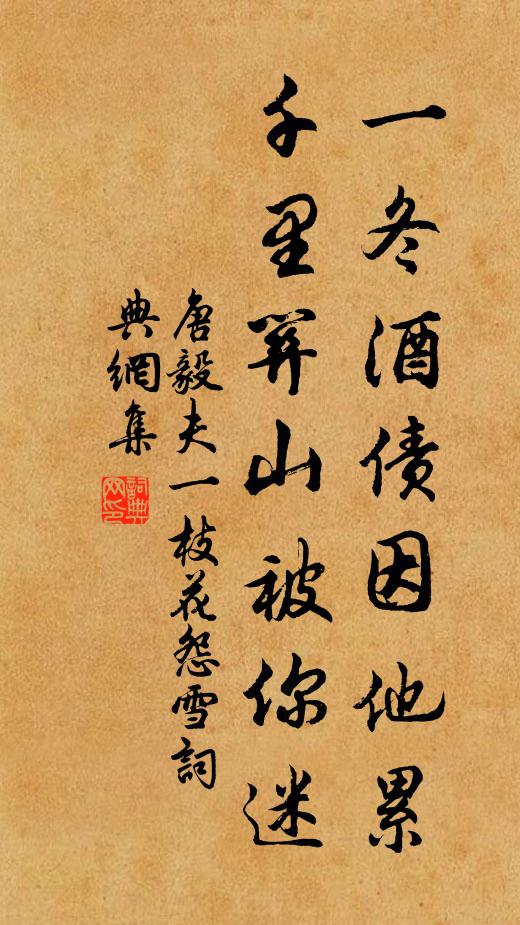 一冬酒债因他累
千里关山被你迷
唐毅夫一枝花怨雪詞
典網集
詞典
网印